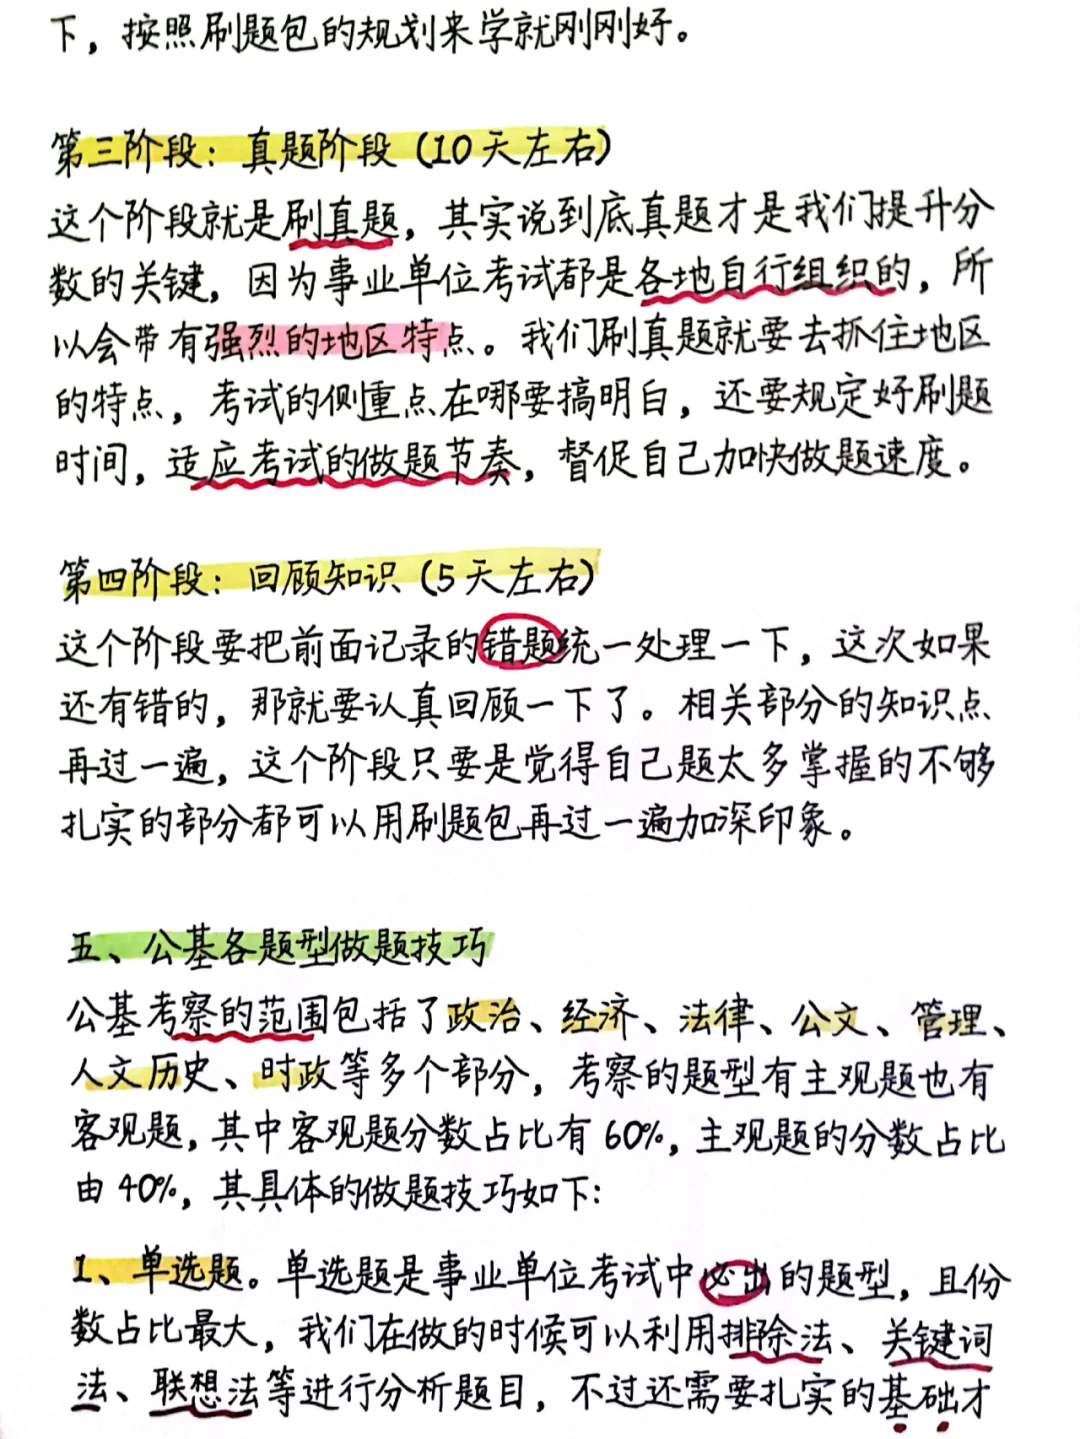 下，按照刷题包的规划来学就刚刚好。
第三阶段：真题阶段（10天左右）
这个阶段就是刷真题，其实说到底真题才是我们提升分
数的关键，因为事业单位考试都是各地自行组织的，所
以会带有强烈的地区特点。我们刷真题就要去抓住地区
的特点，考试的侧重点在哪要搞明白，还要规定好刷题
时间，适应考试的做题节奏，督促自己加快做题速度。
第四阶段：回顾知识（5天左右）
这个阶段要把前面记录的错题统一处理一下，这次如果
还有错的，那就要认真回顾一下了。相关部分的知识点
再过一遍，这个阶段只要是觉得自己题太多掌握的不够
扎实的部分都可以用刷题包再过一遍加深印象。
五、公基各题型做题技巧
公基考察的范围包括了政治、经济、法律、公文、管理、
人文历史、时政等多个部分，考察的题型有主观题也有
客观题，其中客观题分数占比有60%，主观题的分数占比
由40%，其具体的做题技巧如下：
1、单选题。单选题是事业单位考试中必出的题型，且份
数占比最大，我们在做的时候可以利用排除法、关键词
法、联想法等进行分析题目，不过还需要扎实的基础才